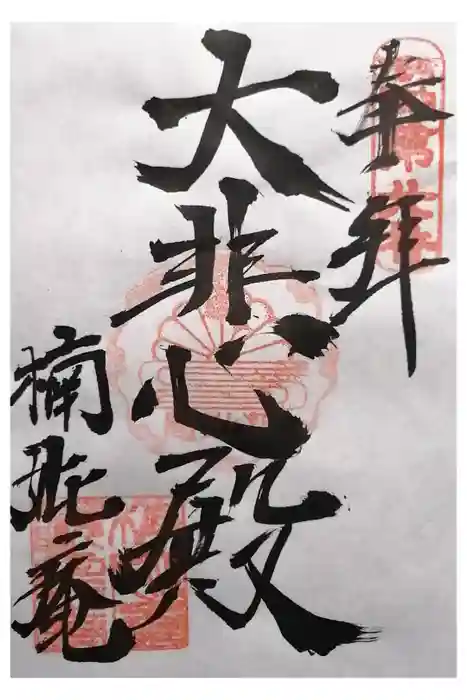 奉拝
大悲心殿
楠妣庵